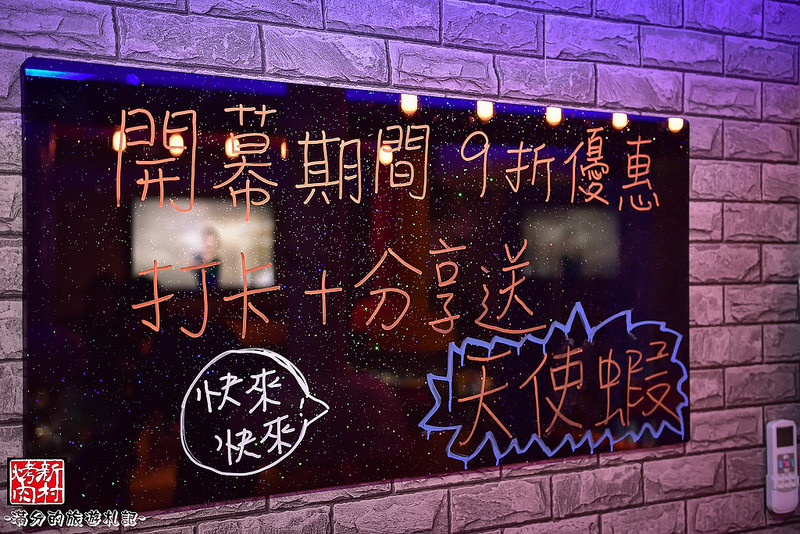 開幕期間9折優惠
打卡+分享送
天使蝦
快來!
快來!
新村
烤肉
-滿分的旅遊札記-